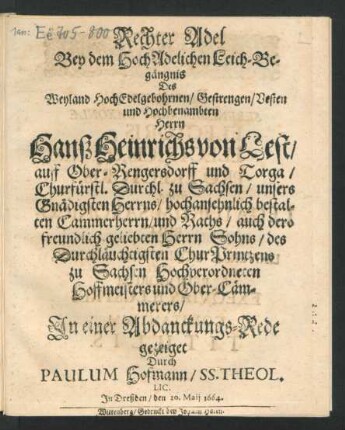 Ee 705-800
Rechter Adel
Bey dem HochAdelichen Leich-Be-
gängnis
Des
Weyland HochEdelgebohrnen/ Gestrengen/ Vesten
und Hochbenambten
Herrn
Hanß Heinrichs von Nest/
auff Ober-Rengersdorff und Torga/
Churfürstl. Durchl. zu Sachsen/ unsers
Gnädigsten Herrns/ hochansehnlich bestal-
ten Cammerherrn/ und Raths/ auch dero
freundlich geliebten Herrn Sohns/ des
Durchläuchtigsten ChurPrintzens
zu Sachsen Hochverordneten
Hoffmeisters und Ober-Cäm-
merers/
In einer Abdanckungs-Rede
gezeiget
Durch
PAULUM Hofmann/ SS. THEOL.
LIC.
In Dreßden/ den 20. Maij 1664.
Wittenberg/ Gedruckt bey